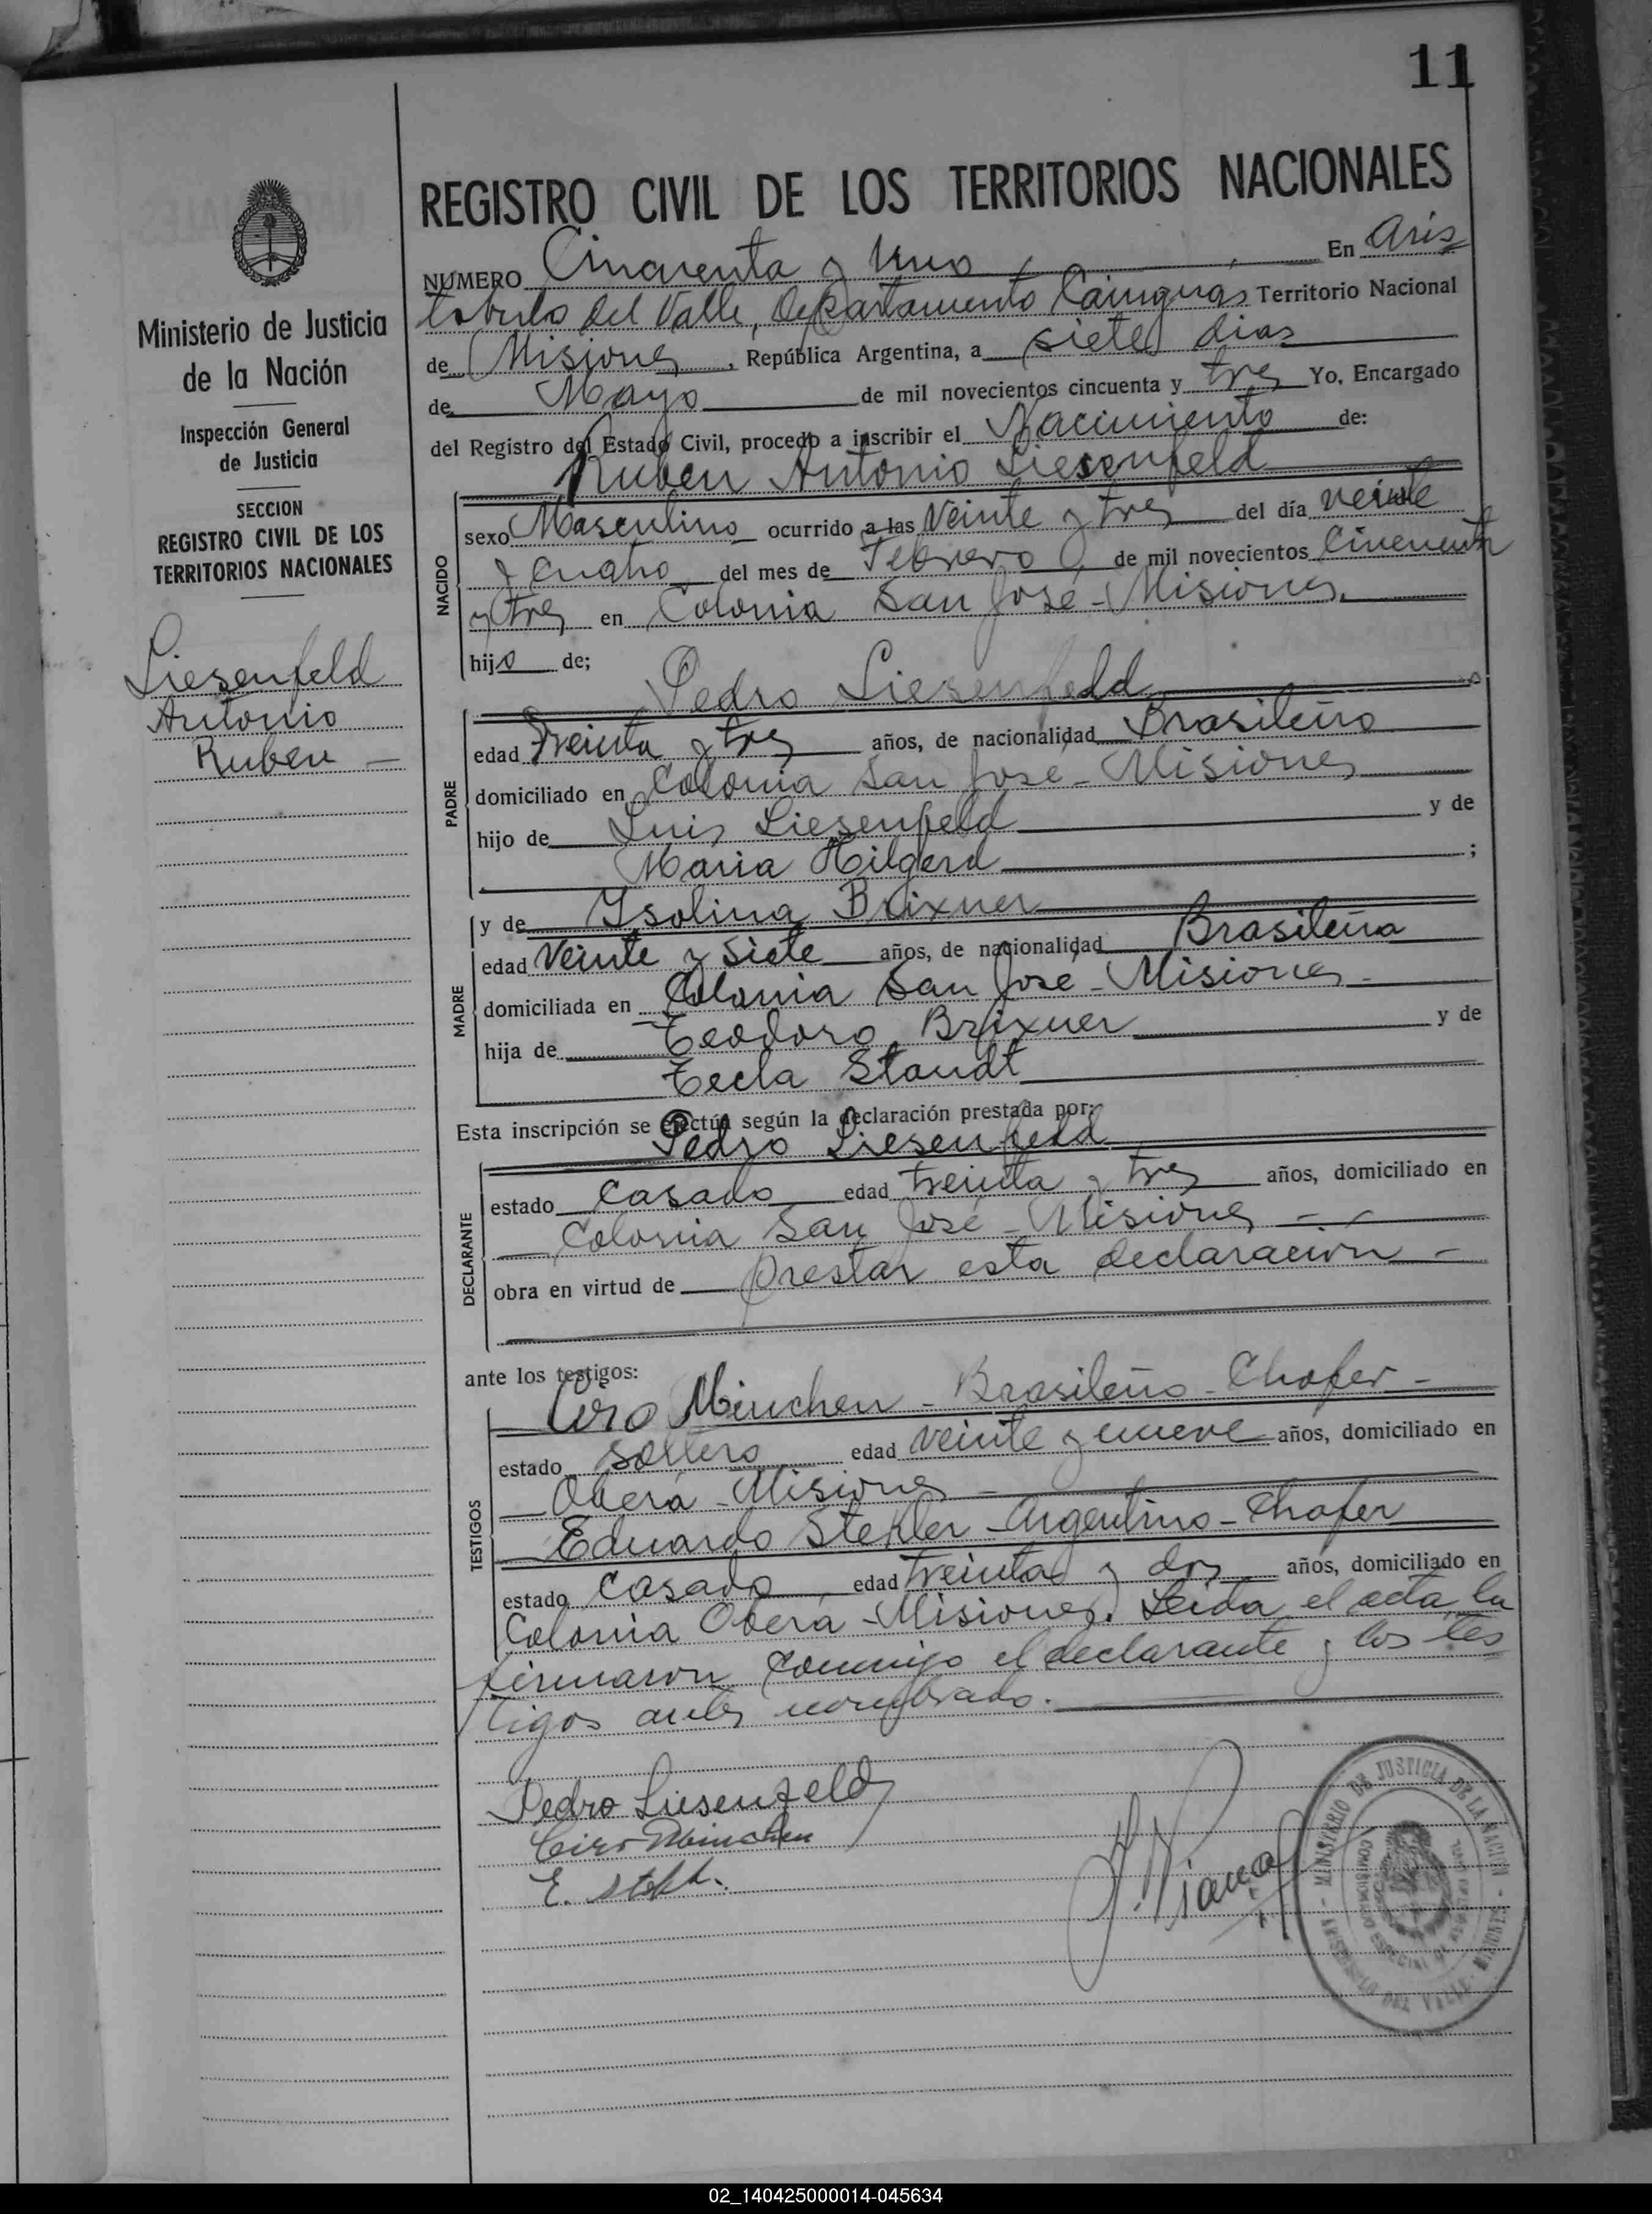 11
REGISTRO CIVIL DE LOS TERRITORIOS NACIONALES
NUMERO Cincuenta y Uno En Aris
tobulo del Valle, Departamento Cainguas Territorio Nacional
de Misiones, República Argentina, a siete dias
de Mayo de mil novecientos cincuenta y tres Yo, Encargado
del Registro del Estado Civil, procedo a inscribir el Nacimiento de:
Ruben Antonio Liesenfeld
NACIDO
sexo Masculino ocurrido a las Veinte y tres del día veinte
y cuatro del mes de Febrero de mil novecientos Cincuenta
y tres en Colonia San José - Misiones.
hijo de;
Pedro Liesenfeld
PADRE
edad Treinta y tres años, de nacionalidad Brasileño
domiciliado en Colonia San José - Misiones
hijo de Luis Liesenfeld y de
Maria Hilgerd ;
MADRE
y de Ysolina Brixner
edad Veinte y Siete años, de nacionalidad Brasileña
domiciliada en Colonia San José - Misiones -
hija de Teodoro Brixner y de
Tecla Staudt
Esta inscripción se efectúa según la declaración prestada por:
Pedro Liesenfeld
DECLARANTE
estado Casado edad treinta y tres años, domiciliado en
Colonia San José - Misiones - . -
obra en virtud de prestar esta declaración -
ante los testigos:
TESTIGOS
Ciro Minchen - Brasileño - Chofer -
estado Soltero edad veinte y nueve años, domiciliado en
Oberá - Misiones -
Eduardo Stekler - Argentino - Chofer
estado Casado edad treinta y dos años, domiciliado en
Colonia Oberá - Misiones. Leida el acta, la
firmaron conmigo el declarante y los tes
tigos antes nombrado.
Pedro Liesenfeld
Ciro Minchen
MINISTERIO DE JUSTICIA DE LA NACION - ARISTOBULO DEL VALLE - MISIONES -
Ministerio de Justicia
de la Nación
Inspección General
de Justicia
SECCION
REGISTRO CIVIL DE LOS
TERRITORIOS NACIONALES
Liesenfeld
Antonio
Ruben -
02_140425000014-045634